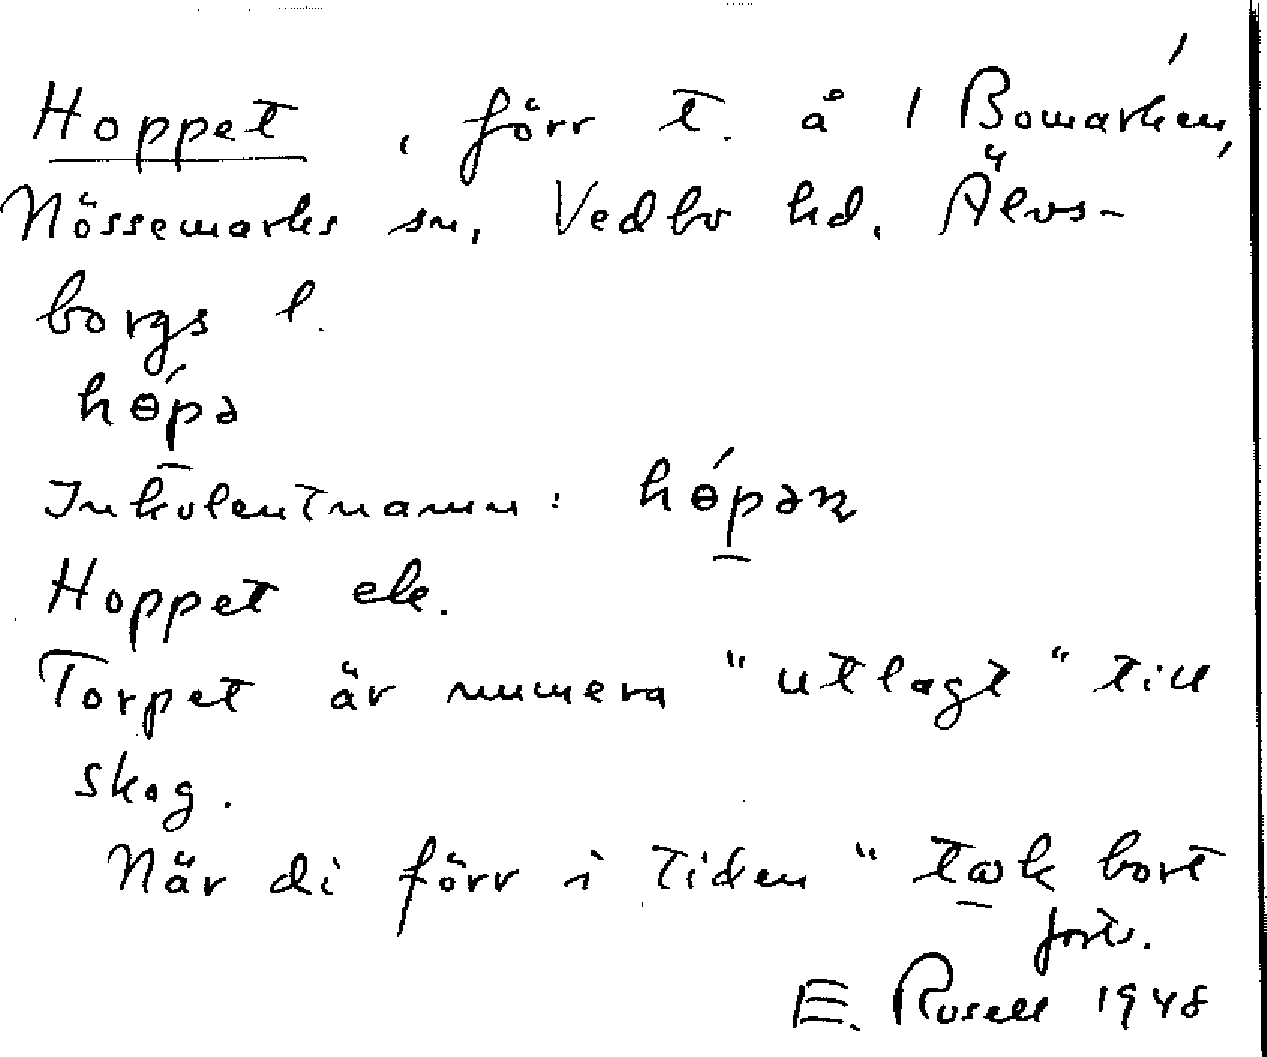 Hoppet, förr t. å 1 Bomarken,
Nössemarks sn, Vedbo hd, Älvs-
borgs l.
hɵ́pə
Inkolentnamn: hɵ́pəɳ
Hoppet ek.
Torpet är numera "utlagt" till
skog.
När di förr i tiden "tωk bort
forts.
E. Rosell 1948